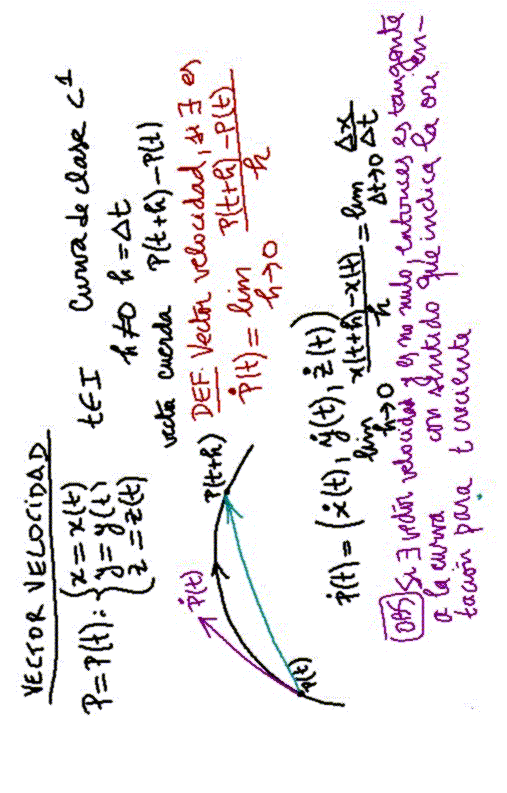 VECTOR VELOCIDAD
P=P(t): { x=x(t) t∈I Curva de clase C1
y=y(t) h≠0 h=Δt
z=z(t)
vector cuerda P(t+h)-P(t)
P(t+h)
Ṗ(t)
P(t)
DEF. Vector velocidad, si ∃ es
Ṗ(t) = lim h→0 P(t+h)-P(t) / h
Ṗ(t) = (ẋ(t), ẏ(t), ż(t))
lim h→0 x(t+h)-x(t) / h = lim Δt→0 Δx / Δt
OBS Si ∃ vector velocidad y es no nulo, entonces es tangente
a la curva con sentido que indica la orien-
tación para t creciente